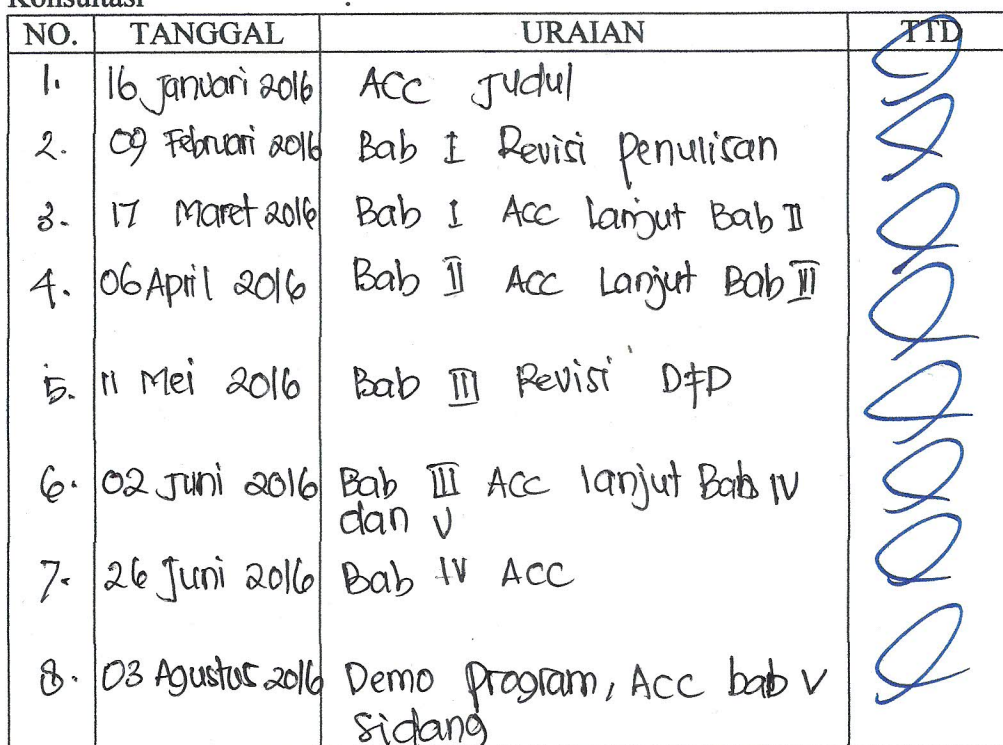 Konsultasi :
NO. TANGGAL URAIAN TTD
1. 16 Januari 2016 ACC Judul
2. 09 Februari 2016 Bab I Revisi Penulisan
3. 17 Maret 2016 Bab I Acc Lanjut Bab II
4. 06 April 2016 Bab II Acc Lanjut Bab III
5. 11 Mei 2016 Bab III Revisi DFD
6. 02 Juni 2016 Bab III Acc lanjut Bab IV
dan V
7. 26 Juni 2016 Bab IV ACC
8. 03 Agustus 2016 Demo Program, Acc bab V
Sidang